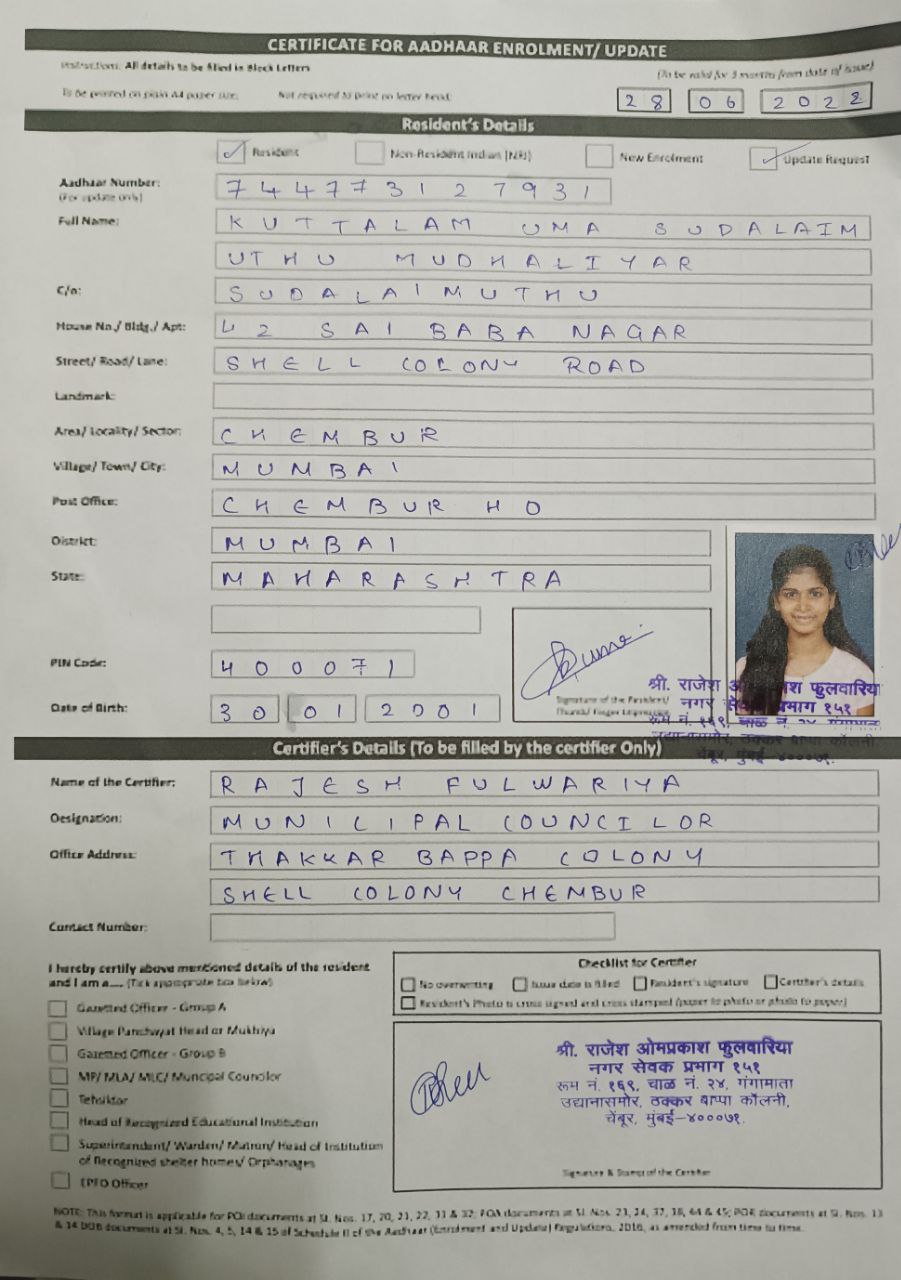 CERTIFICATE FOR AADHAAR ENROLMENT/ UPDATE
Instructions: All details to be filled in Block Letters
(To be valid for 3 months from date of issue)
To be printed on plain A4 paper size. Not required to print on letter head.
28 06 2022
Resident's Details
Resident Non-Resident Indian (NRI) New Enrolment Update Request
Aadhaar Number: 744773127931
(For update only)
Full Name: KUTTALAM UMA SUDALAIM
UTHU MUDHALIYAR
C/o: SUDALAIMUTHU
House No./ Bldg./ Apt: 42 SAI BABA NAGAR
Street/ Road/ Lane: SHELL COLONY ROAD
Landmark:
Area/ Locality/ Sector: CHEMBUR
Village/ Town/ City: MUMBAI
Post Office: CHEMBUR HO
District: MUMBAI
State: MAHARASHTRA
PIN Code: 400071
Signature of the Resident/
Thumb/ Finger Impression
Date of Birth: 30 01 2001
श्री. राजेश ओमप्रकाश फुलवारिया
नगर सेवक प्रभाग १५१
रूम नं. १६९, चाळ नं. २४, गंगामाता
उद्यानासमोर, ठक्कर बाप्पा कॉलनी
चेंबूर, मुंबई-४०००७१.
Certifier's Details (To be filled by the certifier Only)
Name of the Certifier: RAJESH FULWARIYA
Designation: MUNICIPAL COUNCILOR
Office Address: THAKKAR BAPPA COLONY
SHELL COLONY CHEMBUR
Contact Number:
I hereby certify above mentioned details of the resident
and I am a.... (Tick appropriate box below)
Gazetted Officer - Group A
Village Panchayat Head or Mukhiya
Gazetted Officer - Group B
MP/ MLA/ MLC/ Muncipal Councilor
Tehsildar
Head of Recognized Educational Institution
Superintendent/ Warden/ Matron/ Head of Institution
of Recognized shelter homes/ Orphanages
EPFO Officer
Checklist for Certifier
No overwriting Issue date is filled Resident's signature Certifier's details
Resident's Photo is cross signed and cross stamped (paper to photo or photo to paper)
श्री. राजेश ओमप्रकाश फुलवारिया
नगर सेवक प्रभाग १५१
रूम नं. १६९, चाळ नं. २४, गंगामाता
उद्यानासमोर, ठक्कर बाप्पा कॉलनी,
चेंबूर, मुंबई-४०००७१.
Signature & Stamp of the Certifier
NOTE: This format is applicable for POI documents at Sl. Nos. 17, 20, 21, 22, 31 & 32; POA documents at Sl. Nos. 23, 24, 37, 38, 44 & 45; POR documents at Sl. Nos. 13
& 14 DOB documents at Sl. Nos. 4, 5, 14 & 15 of Schedule II of the Aadhaar (Enrolment and Update) Regulations, 2016, as amended from time to time.